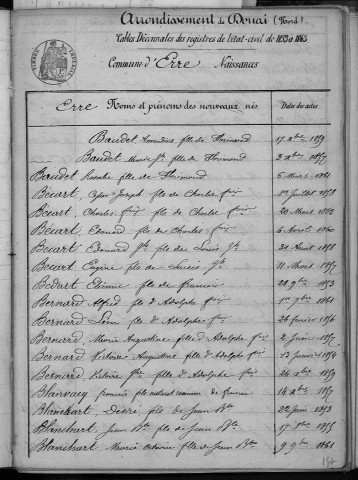 Arrondissement de Douai (Nord)
Tables Décennales des registres de l'état-civil de 1853 a 1863
Commune d'Erre Naissances
Erre Noms et prénoms des nouveaux nés. Dates des actes
Baudet Amandine fille de Florimond 17 Xbre 1859
Baudet Marie fille de Florimond 3 Xbre 1857
Baudet Rosalie fille de Florimond 6 Mars 1861
Bécart, Joseph fils de Charles Juillet 1858
Bécart, Charles fils de Charles 20 Mars
Bécart, Edouard fils de Charles 6 Avril 1860
Bécart Edouard fils de Louis Août
Bécart Eugène fils de Louis 11 Mars 1857
Bédart Etienne fils de 28 9bre 1853
Bernard Alfred fils d'Adolphe 1er 9bre 1861
Bernard Léon fils d'Adolphe 24 février 1856
Bernard, Marie Augustine fille d'Adolphe 2 Juin 1857
Bernard Victoire Augustine fille d'Adolphe 13 Janvier
Bernard Victoire fille d'Adolphe 26 Xbre 1859
fils naturel reconnu de 14 Xbre
Blanchart, Désiré fils de Jean Bte 22 Juin 1853
Blanchart Jean Bte fils de Jean Bte 17 1855
Blanchart Marie fille de Jean Bte 9 9bre 1861